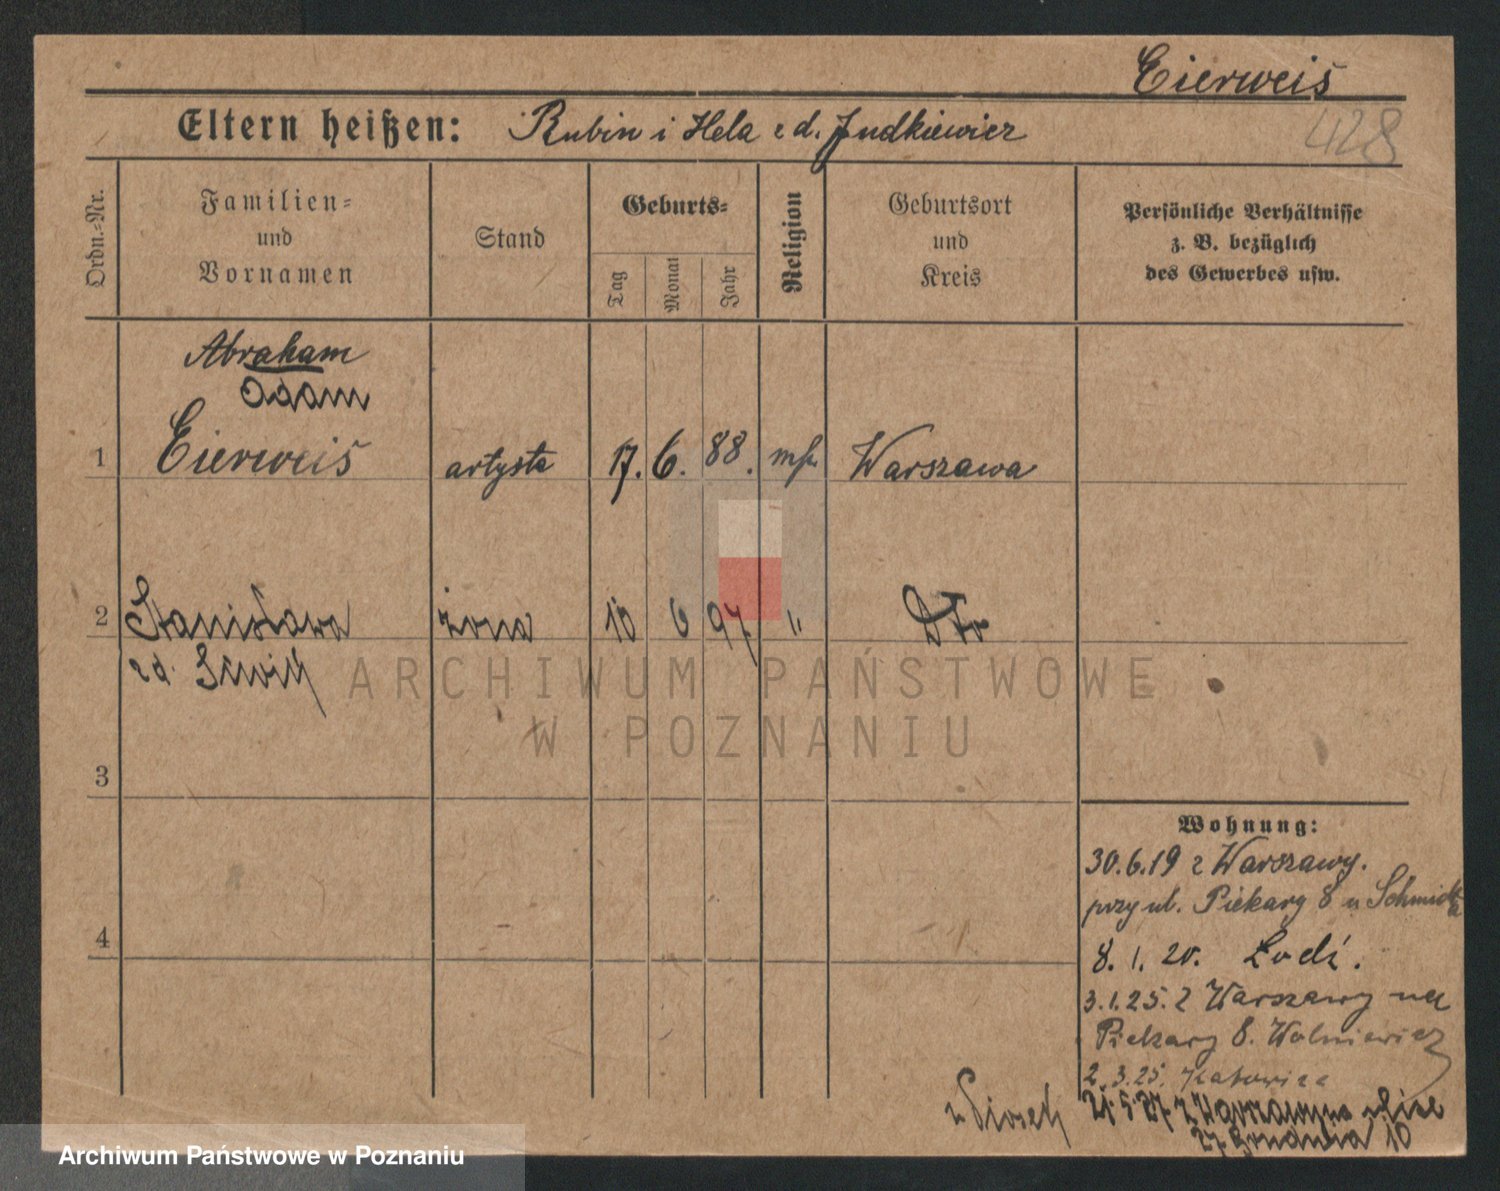 Eierweiš
Eltern heißen: Rubin i Hela z d. Judkiewicz
428
Ordn.-Nr.
Familien-
und
Vornamen
Stand
Geburts-
Tag
Monat
Jahr
Religion
Geburtsort
und
Kreis
Persönliche Verhältnisse
z. B. bezüglich
des Gewerbes usw.
Abraham
Adam
1 Eierweiš artysta 17. 6. 88. mż. Warszawa
2 Stanisława żona 10 6 97 "
zd.
3
4
Wohnung:
30.6.19 z Warszawy.
przy ul. Piekary 8 u Schmidta
8. 1. 20. Łodź.
3.1.25. z Warszawy na
Piekary 8. Wolniewicz
2.3.25. Katowice
21.5.27 z Warszawy na
27 Grudnia 10
ARCHIWUM PAŃSTWOWE
W POZNANIU
Archiwum Państwowe w Poznaniu